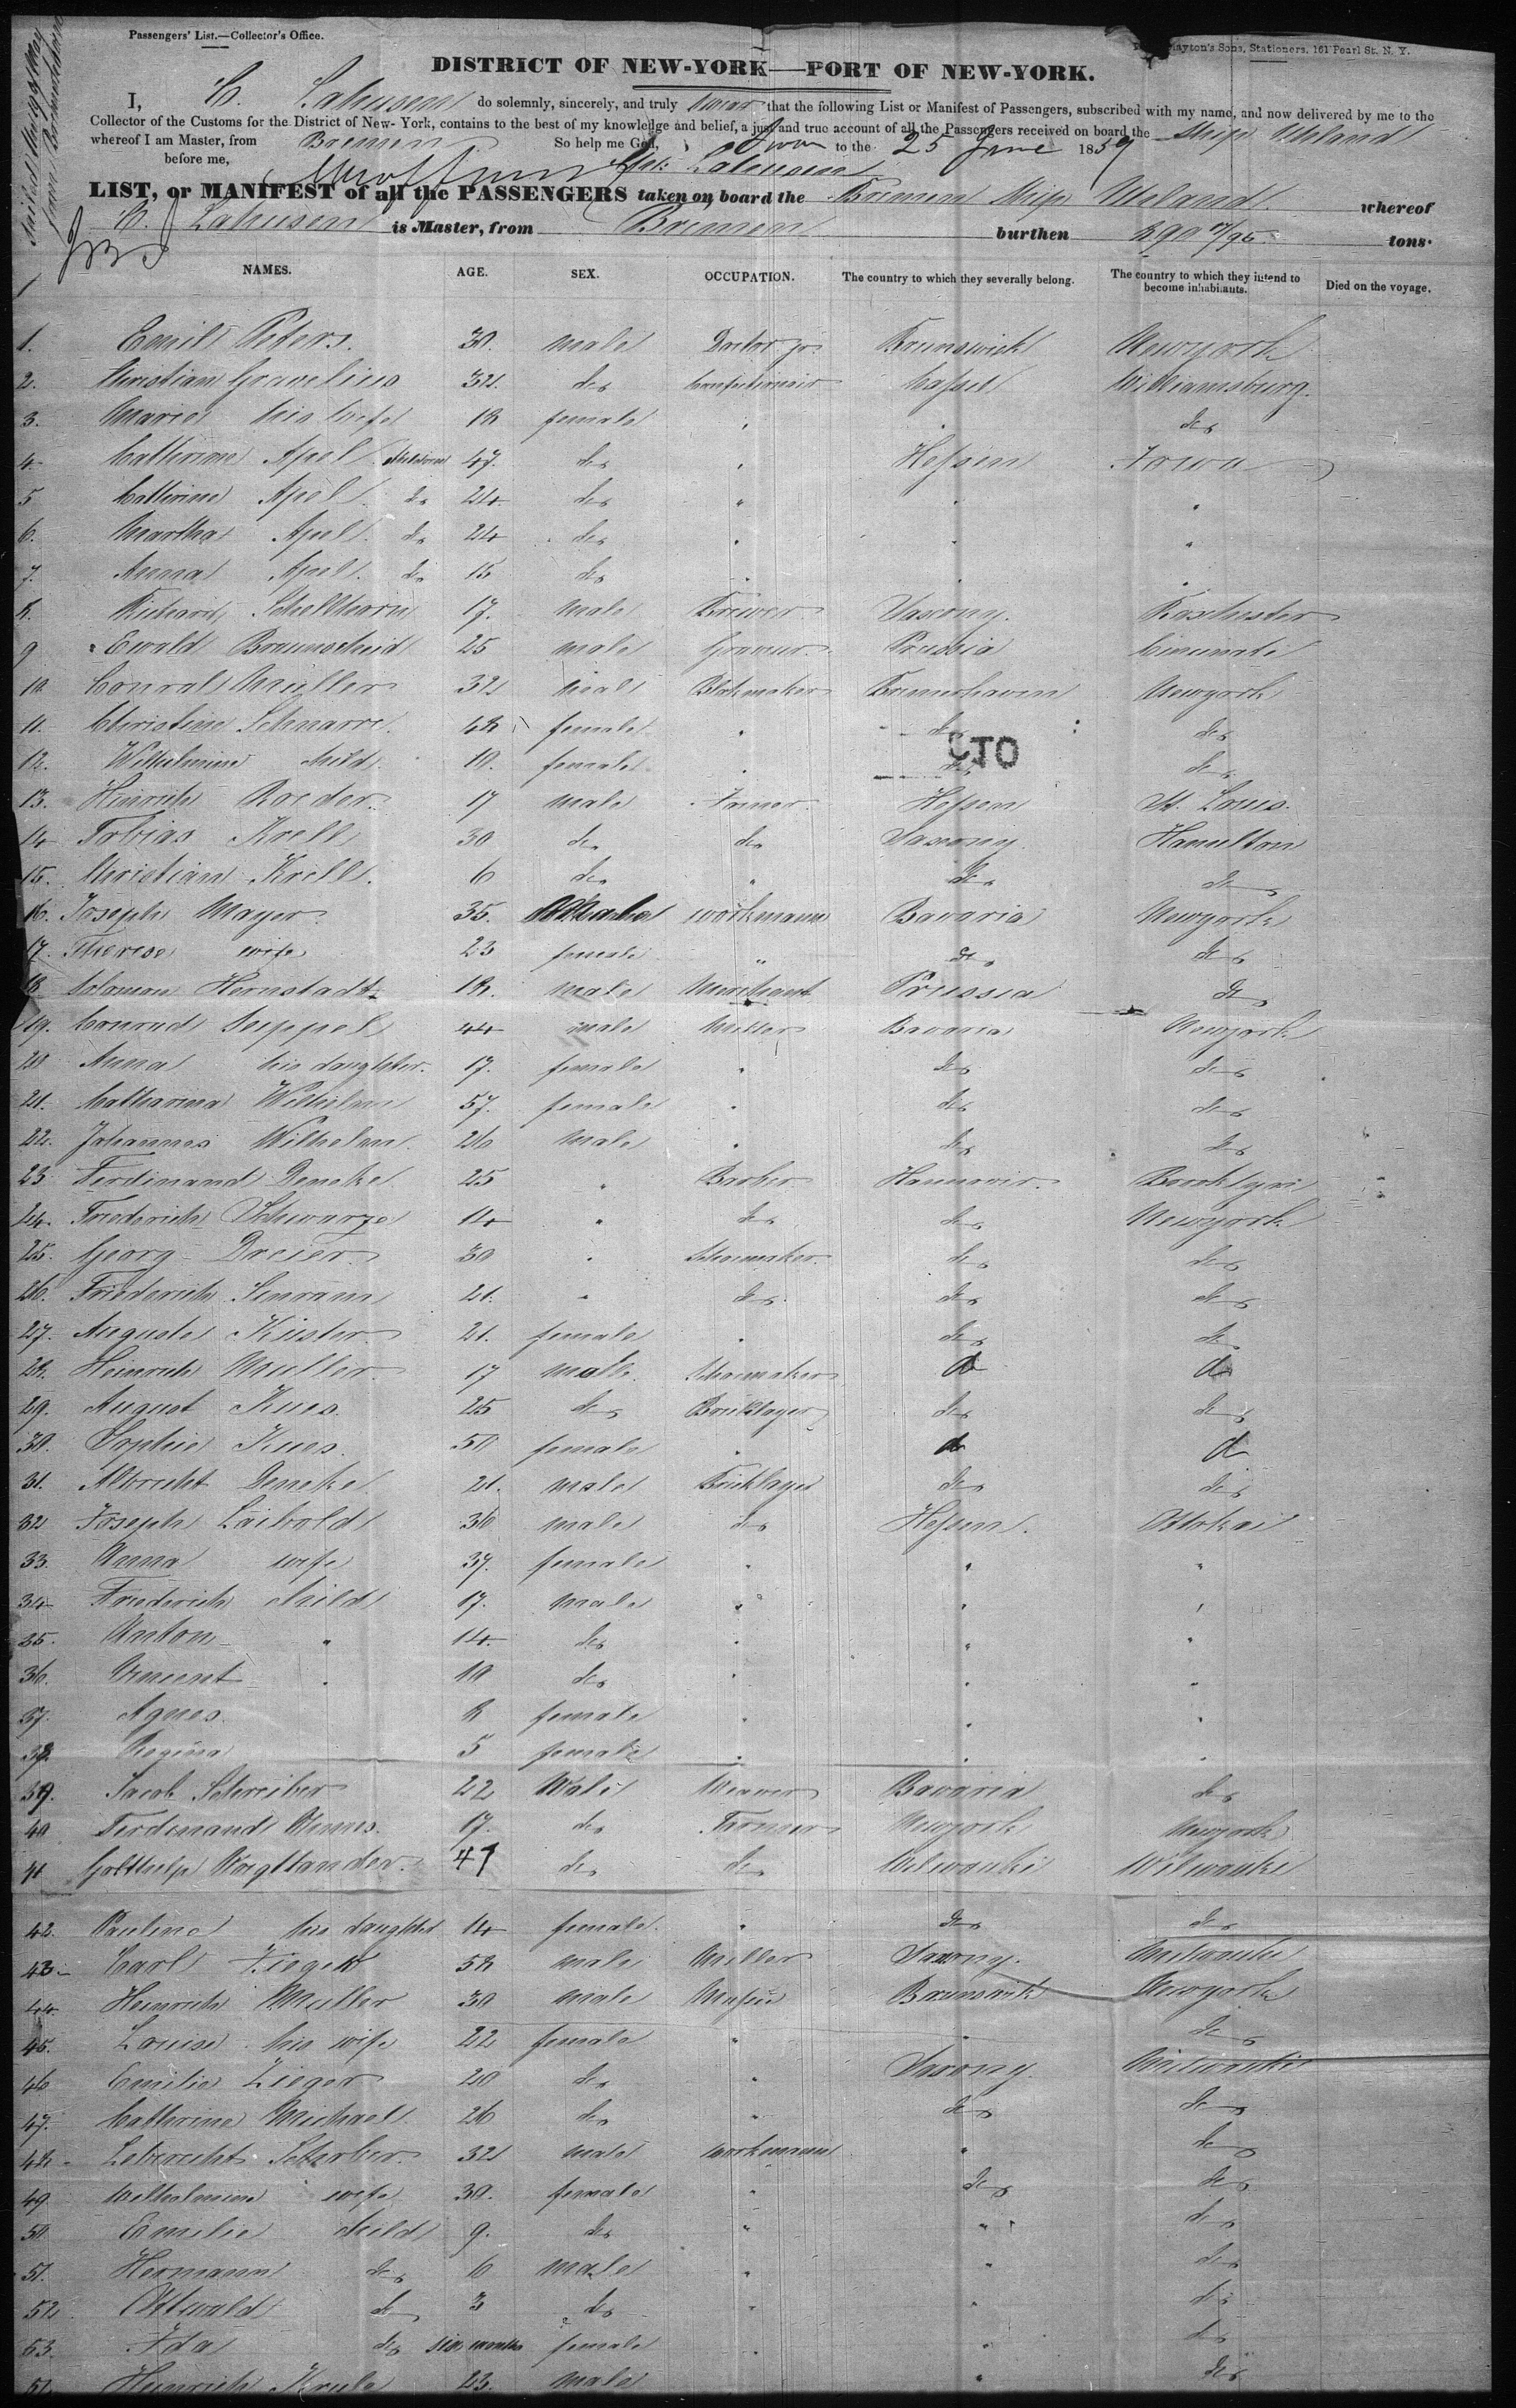 Passengers' List.—Collector's Office.
ayton's Sons, Stationers, 161 Pearl St. N. Y.
DISTRICT OF NEW-YORK—PORT OF NEW-YORK.
I, C. Lahusen do solemnly, sincerely, and truly swear that the following List or Manifest of Passengers, subscribed with my name, and now delivered by me to the
Collector of the Customs for the District of New-York, contains to the best of my knowledge and belief, a just and true account of all the Passengers received on board the Ship Uhland
whereof I am Master, from Bremen So help me God, Sworn to the 25 June 1859
before me, Lahusen
LIST, or MANIFEST of all the PASSENGERS taken on board the Bremen Ship Uhland whereof
C. Lahusen is Master, from Bremen burthen tons.
NAMES. AGE. SEX. OCCUPATION. The country to which they severally belong. The country to which they intend to become inhabitants. Died on the voyage.
1. Emil Peters. 30. male Doctor Brunswick Newyork
2. Christian Gravelius 32. do Cassel Williamsburg.
3. Marie his wife 18 female " " do
4 Catherine Apel 47. do " Hessen Iowa
5 Catherine Apel do 24. do " " "
6. Martha Apel. do 24 do " " "
7. Anna Apel. do 15 do " " "
8. Richard Schellhorn 17. male Brewer Saxony. Rochester
9 Ewald Braunscheid 25 male Graveur. Prussia Cincinati
10 Conrad Müller 32 male Blokmaker Bremerhaven Newyork
11. Christine Schnarre. 48 female " do do
12. Wilhelmine child. 10. female " do do
OTC
13. Hinrich Roeder 17 male Farmer Hessen St. Louis.
14 Tobias Krell 30 do do Saxony. Hamelton
15. Christian Krell. 6 do " do do
16. Joseph Mayer 35. Male workmann Bavaria Newyork
17. Therese wife 23 female " do do
18 Salomon Hernstadt 18. male Merchant Prussia do
19. Conrad Seippel 44 male Miller Bavaria Newyork
20 Anna his daughter. 17. female " do do
21. Catharina Wilhelm 57. female " do do
22. Johannes Wilhelm. 26 male " do do
23 Ferdinand Deneke 25 " Barber Hannover. Brooklyn
24. Friederich Schwarze 14 " do do Newyork
25. Georg Dreier 30 " Schoemaker. do do
26. Friederich Senram 21. " do do do
27. Auguste Küster 21. female " do do
28. Heinrich Muller. 17 male. Schoemaker do do
29. August Kues. 25 do Bricklayer do do
30. Sophie Kues. 50 female " do do
31. Albrecht Deneke 21. male Bricklayer do do
32 Joseph Laibold 36 male do Hessen.
33. Anna wife 39. female " " "
34 Friederich child 17. male " " "
35. Anton " 14. do " " "
36. Vincent " 10 do " " "
37. Agnes. 8 female " " "
38. Regina 5 female " " "
39. Jacob Schreiber 22 Male Weawer Bavaria do
40 Ferdinand 17. do Farmer Newyork Newyork
41 Gotthelp Voigtlander. 47 do do Milwaukie Milwaukie
42. Pauline his daughter 14 female. " do do
43 Carl 58 male Miller Saxony. Milwaukie
44 Heinrich Muller 30 male Brunswik Newyork
45. Louise his wife 22 female " " do
46 Emilie Zieger 20 do " Saxony. Milwaukie
47. Catherine Michael. 26 do " do do
48 Lebrecht Scharber. 32 male workmann " do
49 Wilhelmine wife 30. female " do do
50. Emilie child 9. do " " do
51. Hermann do 6 male " " do
52 Ottwald do 3 do " " do
53. Ida do six months female " " do
54. Heinrich Krule 23. male " do